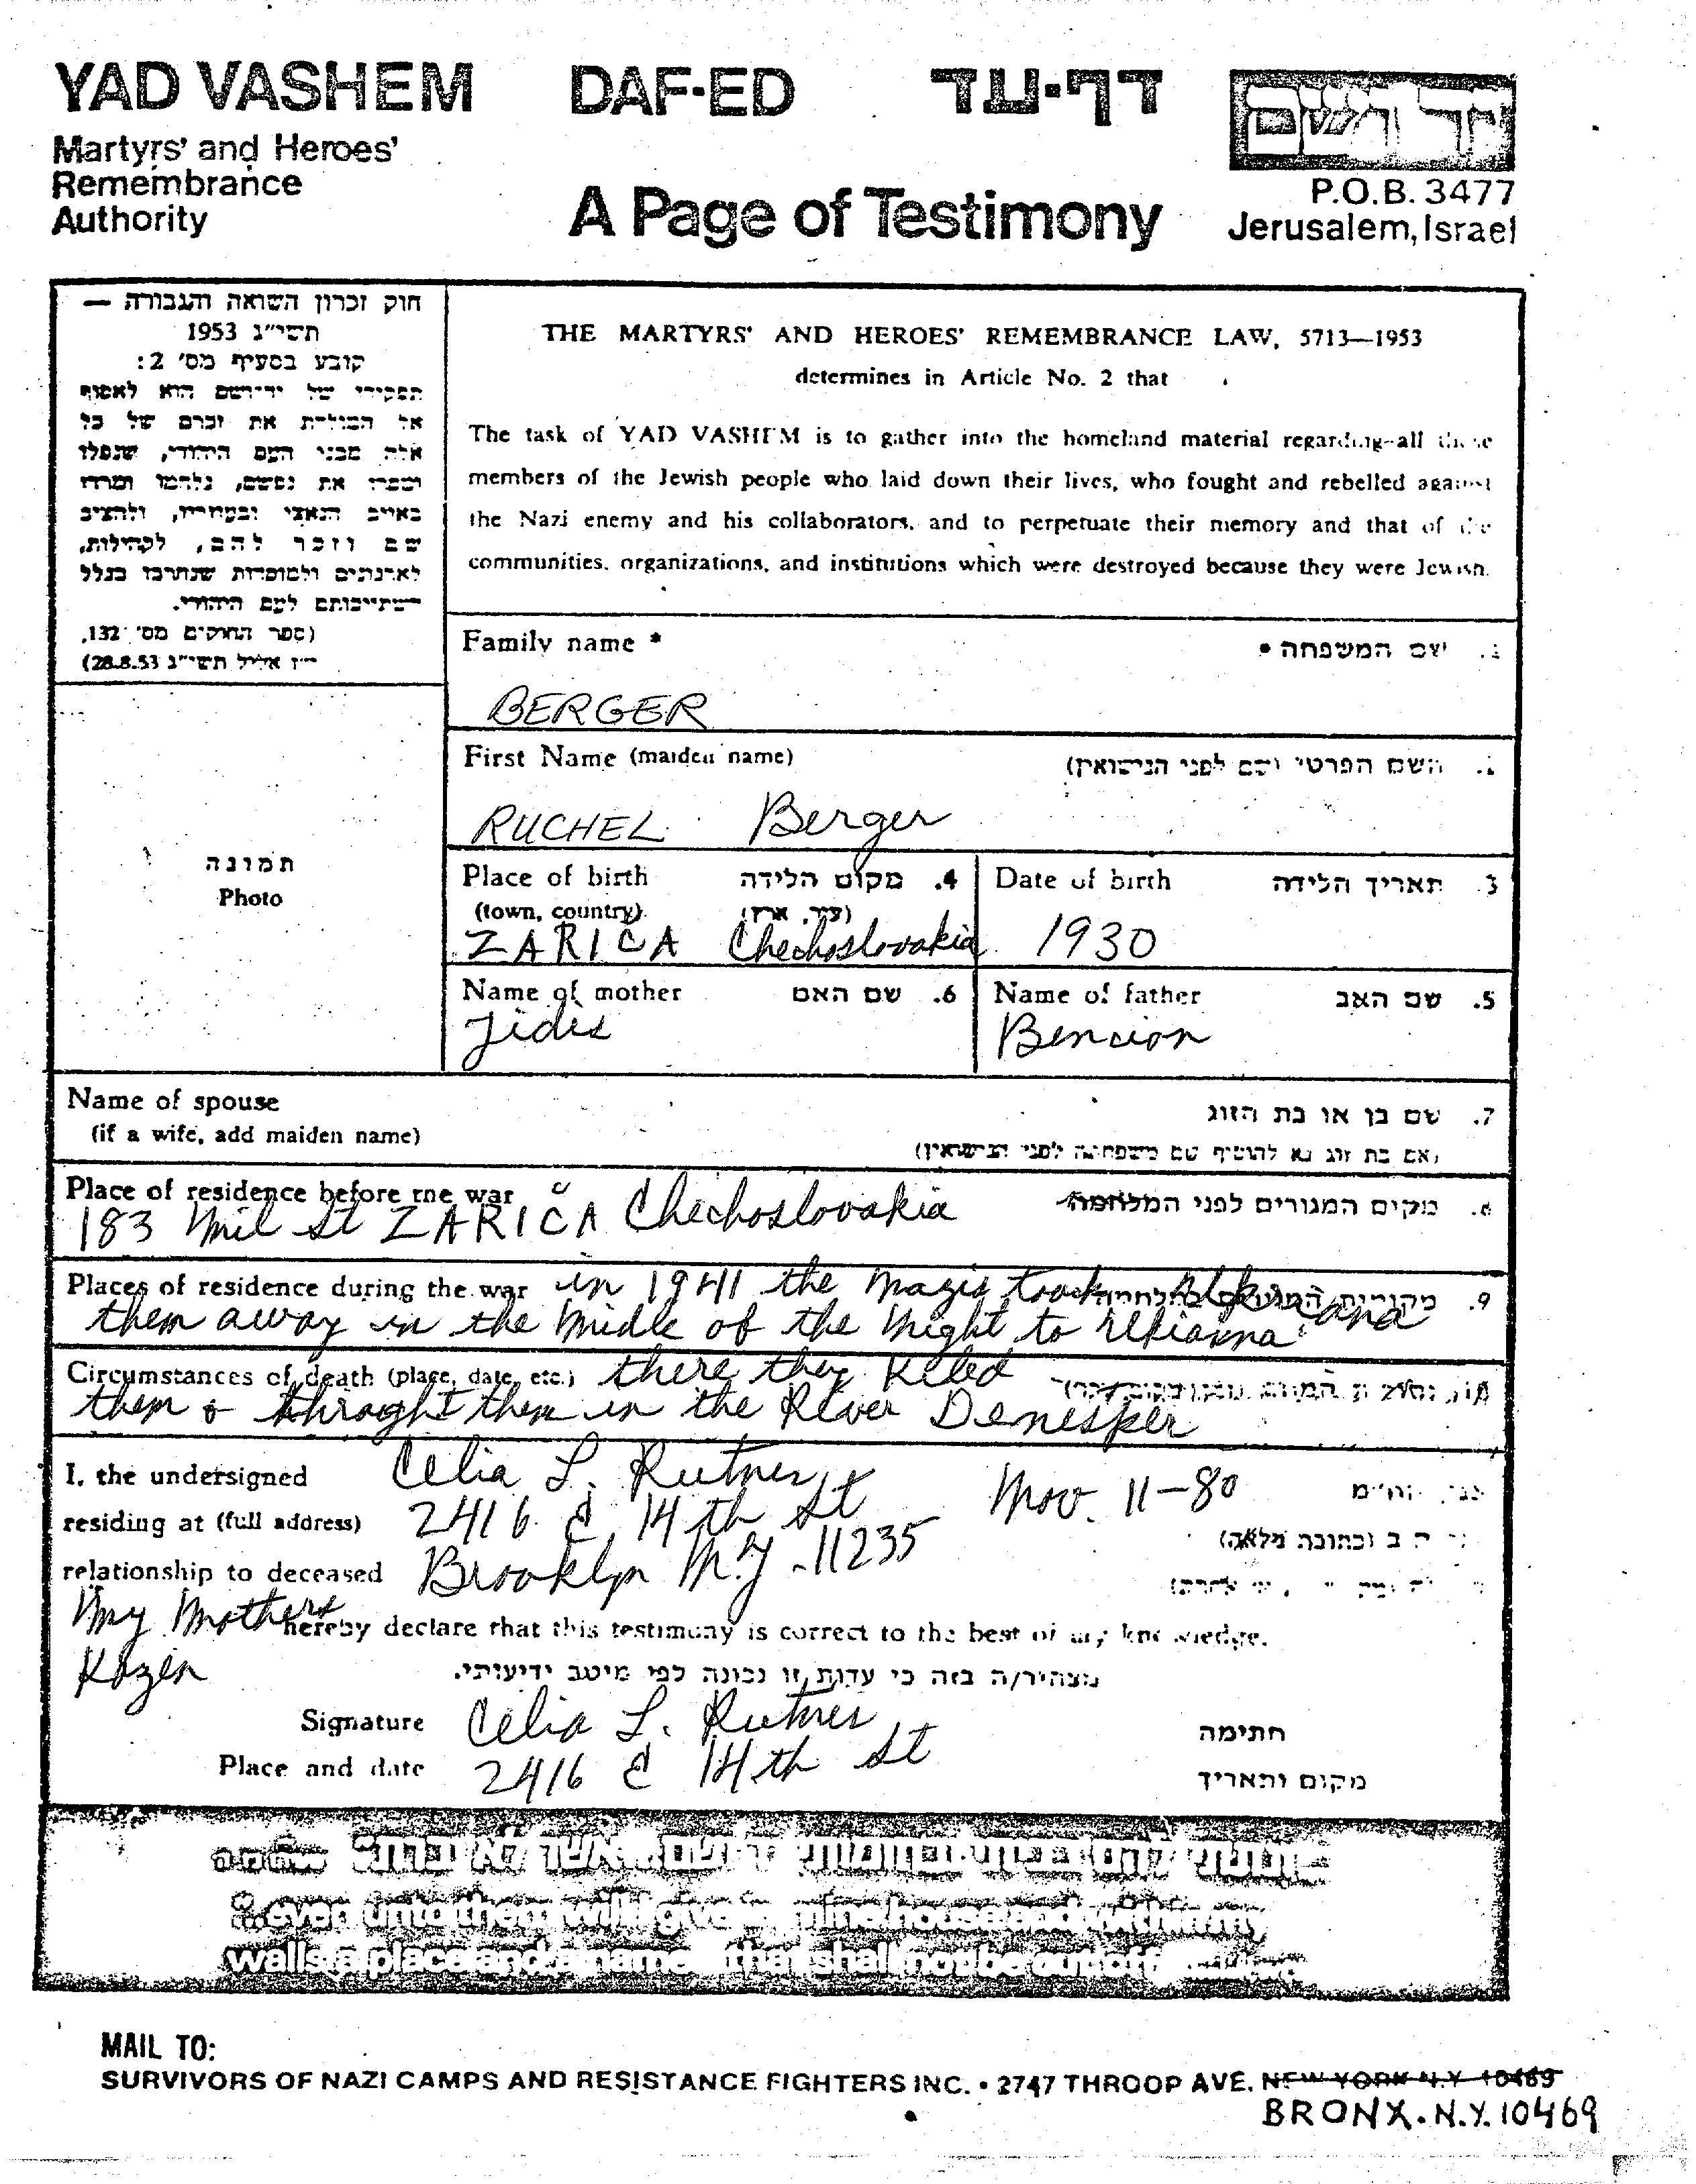 YAD VASHEM DAF-ED דף-עד
Martyrs' and Heroes'
Remembrance
Authority
A Page of Testimony
יד ושם
P.O.B. 3477
Jerusalem, Israel
חוק זכרון השואה והגבורה —
תשי"ג 1953
קובע בסעיף מס' 2:
תפקידו של יד-ושם הוא לאסוף
אל המולדת את זכרם של כל
אלה מבני העם היהודי, שנפלו
ומסרו את נפשם, נלחמו ומרדו
באויב הנאצי ובעוזריו, ולהציב
שם וזכר להם, לקהילות,
לארגונים ולמוסדות שנחרבו בגלל
השתייכותם לעם היהודי.
(ספר החוקים מס' 132,
י"ז אלול תשי"ג 28.8.53)
THE MARTYRS' AND HEROES' REMEMBRANCE LAW, 5713—1953
determines in Article No. 2 that
The task of YAD VASHEM is to gather into the homeland material regarding all those
members of the Jewish people who laid down their lives, who fought and rebelled against
the Nazi enemy and his collaborators, and to perpetuate their memory and that of the
communities, organizations, and institutions which were destroyed because they were Jewish.
Family name * 1. שם המשפחה *
BERGER
First Name (maiden name) 2. השם הפרטי (שם לפני הנישואין)
RUCHEL Berger
תמונה
Photo
Place of birth 4. מקום הלידה
(town, country) (עיר, ארץ)
ZARICA Chechoslovakia
Date of birth 3. תאריך הלידה
1930
Name of mother 6. שם האם
Jidis
Name of father 5. שם האב
Bencion
Name of spouse 7. שם בן או בת הזוג
(if a wife, add maiden name) (אם בת זוג נא להוסיף שם משפחתה לפני הנישואין)
Place of residence before the war 8. מקום המגורים לפני המלחמה
183 Mil St ZARICA Chechoslovakia
Places of residence during the war in 1941 the Nazis took 9.
them away in the Midle of the Night to
Circumstances of death (place, date, etc.) there they Kiled
them & throught them in the River Denesper
I, the undersigned Celia L. Rutner Nov. 11-80
residing at (full address) 2416 E 14th St
relationship to deceased Brooklyn N.Y -11235
My Mothers hereby declare that this testimony is correct to the best of my knowledge.
Kozen
מצהיר/ה בזה כי עדות זו נכונה לפי מיטב ידיעותי.
Signature Celia L. Rutner חתימה
Place and date 2416 E 14th St מקום ותאריך
...even unto them will I give in mine house and within my
walls a place and a name... that shall not be cut off
MAIL TO:
SURVIVORS OF NAZI CAMPS AND RESISTANCE FIGHTERS INC. • 2747 THROOP AVE. NEW YORK N.Y 10469
BRONX. N.Y. 10469